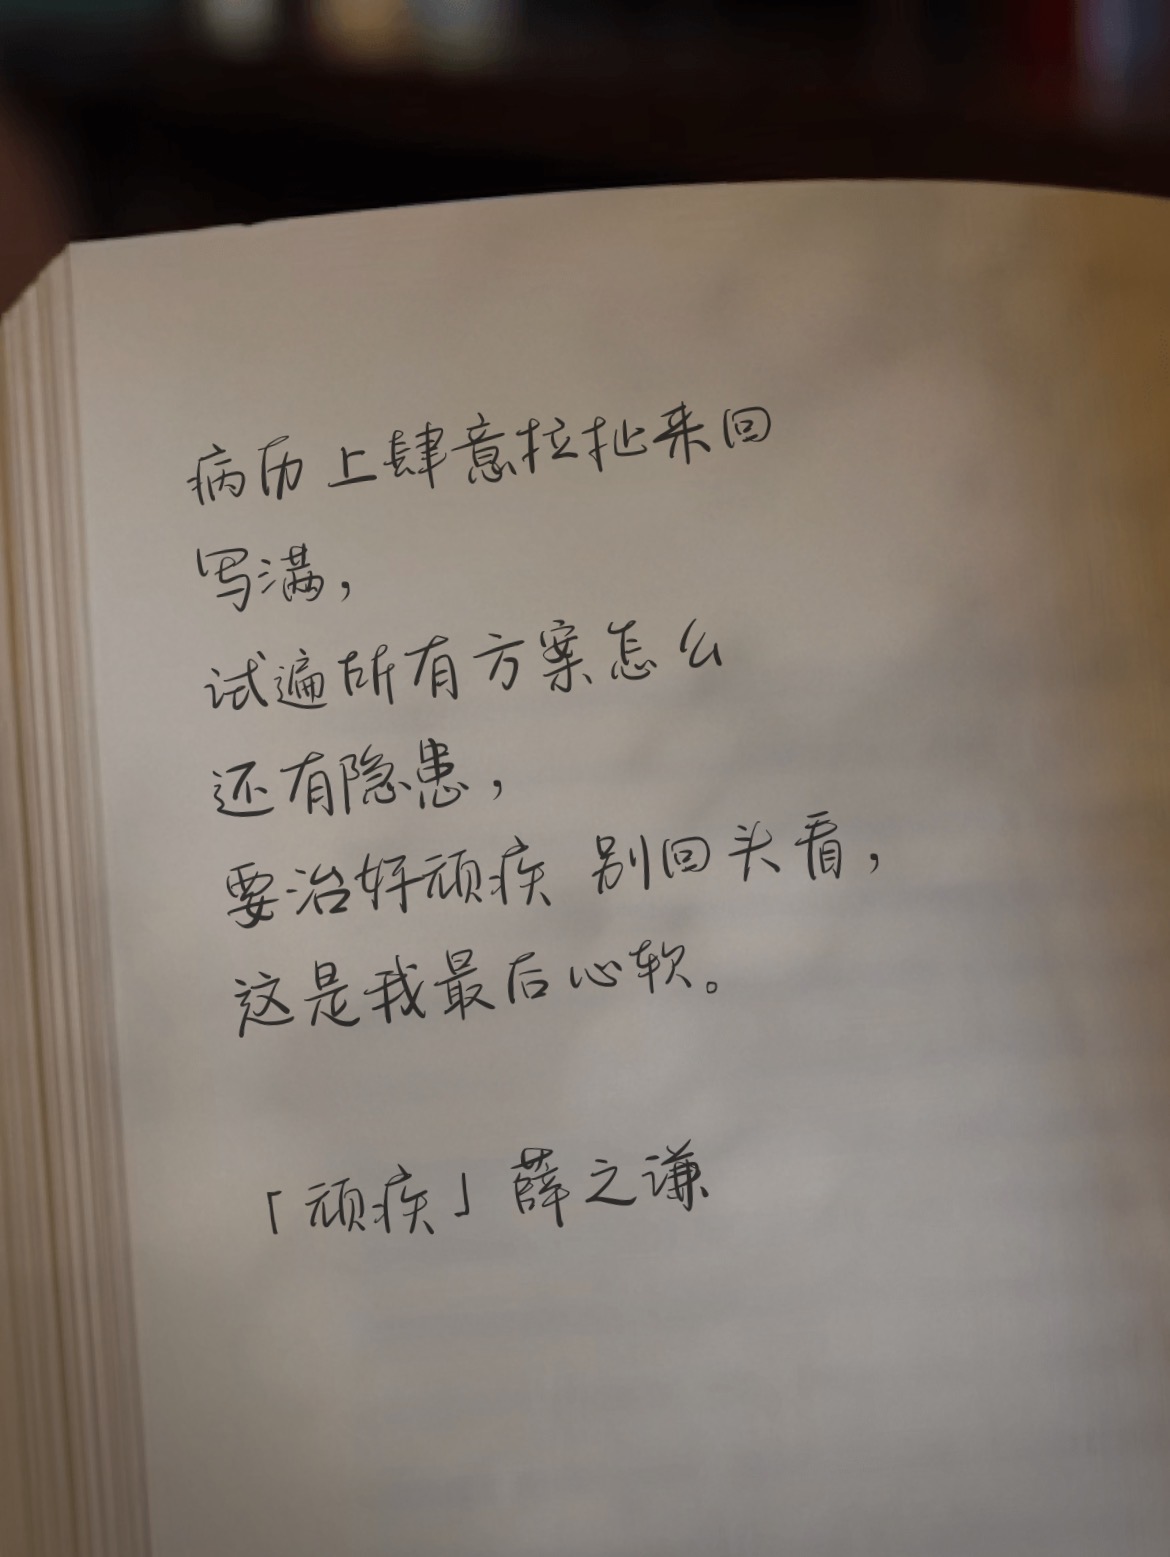 病历上肆意拉扯来回
写满，
试遍所有方案怎么
还有隐患，
要治好顽疾 别回头看，
这是我最后心软。
「顽疾」薛之谦